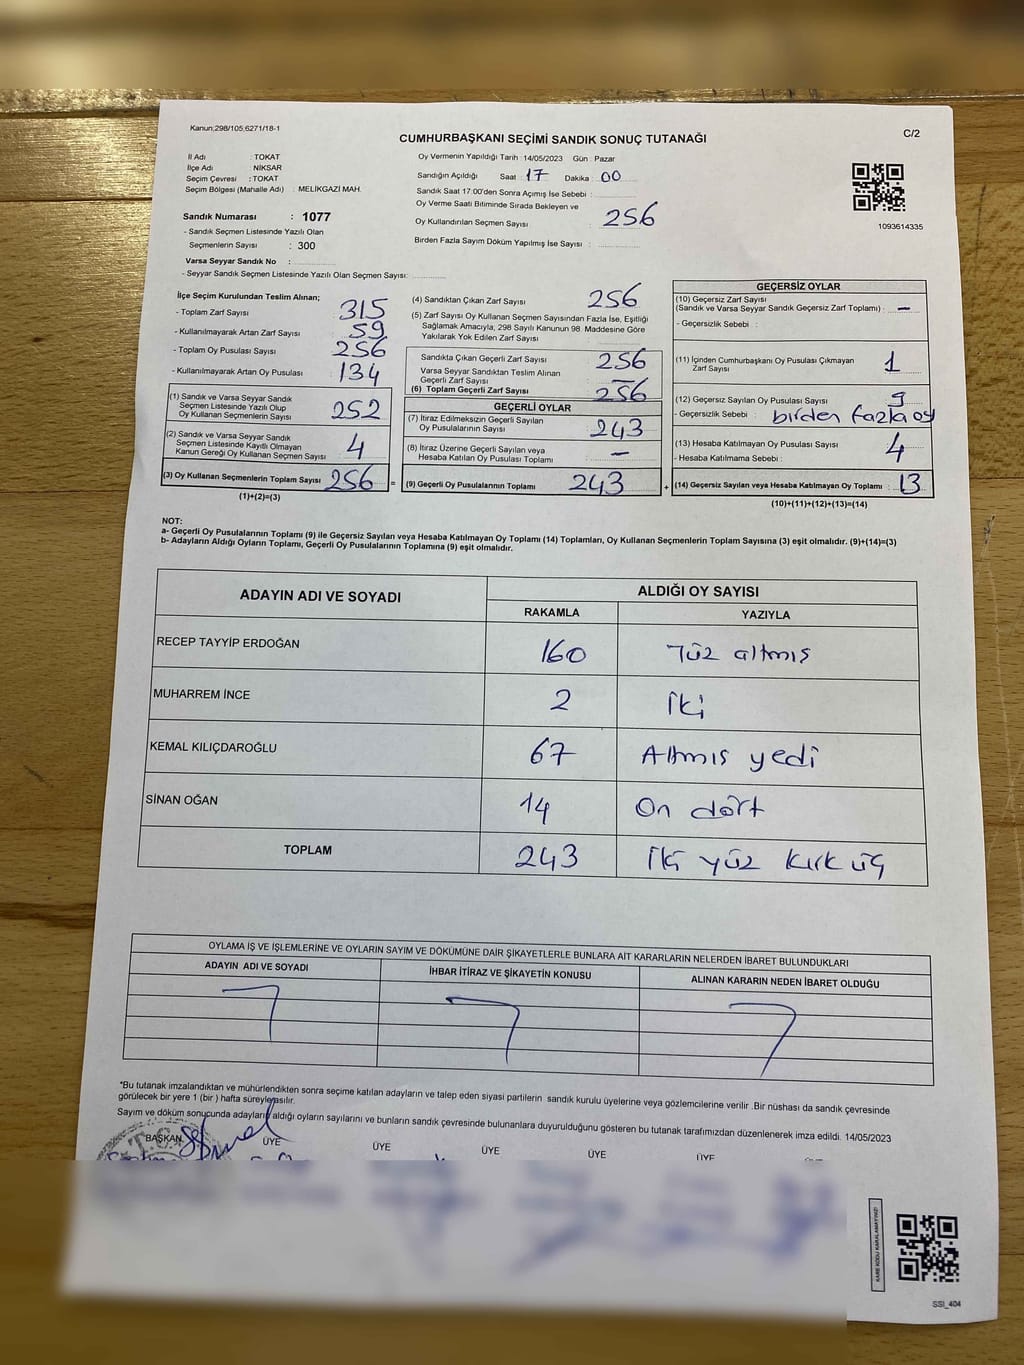 Kanun;298/105,6271/18-1
CUMHURBAŞKANI SEÇİMİ SANDIK SONUÇ TUTANAĞI
C/2
İl Adı : TOKAT
İlçe Adı : NİKSAR
Seçim Çevresi : TOKAT
Seçim Bölgesi (Mahalle Adı) : MELİKGAZİ MAH.
Sandık Numarası : 1077
- Sandık Seçmen Listesinde Yazılı Olan
Seçmenlerin Sayısı : 300
Varsa Seyyar Sandık No :
- Seyyar Sandık Seçmen Listesinde Yazılı Olan Seçmen Sayısı:
Oy Vermenin Yapıldığı Tarih : 14/05/2023 Gün : Pazar
Sandığın Açıldığı Saat : 17 Dakika : 00
Sandık Saat 17:00'den Sonra Açımış İse Sebebi :
Oy Verme Saati Bitiminde Sırada Bekleyen ve
Oy Kullandırılan Seçmen Sayısı : 256
Birden Fazla Sayım Döküm Yapılmış İse Sayısı :
1093614335
İlçe Seçim Kurulundan Teslim Alınan;
- Toplam Zarf Sayısı : 315
- Kullanılmayarak Artan Zarf Sayısı : 59
- Toplam Oy Pusulası Sayısı : 256
- Kullanılmayarak Artan Oy Pusulası : 134
(1) Sandık ve Varsa Seyyar Sandık
Seçmen Listesinde Yazılı Olup
Oy Kullanan Seçmenlerin Sayısı : 252
(2) Sandık ve Varsa Seyyar Sandık
Seçmen Listesinde Kayıtlı Olmayan
Kanun Gereği Oy Kullanan Seçmen Sayısı : 4
(3) Oy Kullanan Seçmenlerin Toplam Sayısı : 256 =
(1)+(2)=(3)
(4) Sandıktan Çıkan Zarf Sayısı : 256
(5) Zarf Sayısı Oy Kullanan Seçmen Sayısından Fazla İse, Eşitliği
Sağlamak Amacıyla; 298 Sayılı Kanunun 98. Maddesine Göre
Yakılarak Yok Edilen Zarf Sayısı :
Sandıkta Çıkan Geçerli Zarf Sayısı : 256
Varsa Seyyar Sandıktan Teslim Alınan
Geçerli Zarf Sayısı : –
(6) Toplam Geçerli Zarf Sayısı : 256
GEÇERLİ OYLAR
(7) İtiraz Edilmeksizin Geçerli Sayılan
Oy Pusulalarının Sayısı : 243
(8) İtiraz Üzerine Geçerli Sayılan veya
Hesaba Katılan Oy Pusulası Toplamı : –
(9) Geçerli Oy Pusulalarının Toplamı : 243 +
GEÇERSİZ OYLAR
(10) Geçersiz Zarf Sayısı
(Sandık ve Varsa Seyyar Sandık Geçersiz Zarf Toplamı) : –
- Geçersizlik Sebebi :
(11) İçinden Cumhurbaşkanı Oy Pusulası Çıkmayan
Zarf Sayısı : 1
(12) Geçersiz Sayılan Oy Pusulası Sayısı :
- Geçersizlik Sebebi : birden fazla oy
(13) Hesaba Katılmayan Oy Pusulası Sayısı : 4
- Hesaba Katılmama Sebebi :
(14) Geçersiz Sayılan veya Hesaba Katılmayan Oy Toplamı : 13
(10)+(11)+(12)+(13)=(14)
NOT:
a- Geçerli Oy Pusulalarının Toplamı (9) ile Geçersiz Sayılan veya Hesaba Katılmayan Oy Toplamı (14) Toplamları, Oy Kullanan Seçmenlerin Toplam Sayısına (3) eşit olmalıdır. (9)+(14)=(3)
b- Adayların Aldığı Oyların Toplamı, Geçerli Oy Pusulalarının Toplamına (9) eşit olmalıdır.
ADAYIN ADI VE SOYADI
ALDIĞI OY SAYISI
RAKAMLA YAZIYLA
RECEP TAYYİP ERDOĞAN 160 Yüz altmış
MUHARREM İNCE 2 İki
KEMAL KILIÇDAROĞLU 67 Altmış yedi
SİNAN OĞAN 14 On dört
TOPLAM 243 İki yüz kırk üç
OYLAMA İŞ VE İŞLEMLERİNE VE OYLARIN SAYIM VE DÖKÜMÜNE DAİR ŞİKAYETLERLE BUNLARA AİT KARARLARIN NELERDEN İBARET BULUNDUKLARI
ADAYIN ADI VE SOYADI İHBAR İTİRAZ VE ŞİKAYETİN KONUSU ALINAN KARARIN NEDEN İBARET OLDUĞU
*Bu tutanak imzalandıktan ve mühürlendikten sonra seçime katılan adayların ve talep eden siyasi partilerin sandık kurulu üyelerine veya gözlemcilerine verilir .Bir nüshası da sandık çevresinde
görülecek bir yere 1 (bir ) hafta süreyle asılır.
Sayım ve döküm sonucunda adayların aldığı oyların sayılarını ve bunların sandık çevresinde bulunanlara duyurulduğunu gösteren bu tutanak tarafımızdan düzenlenerek imza edildi. 14/05/2023
BAŞKAN ÜYE ÜYE ÜYE ÜYE ÜYE
KARE KODU KARALAMAYINIZ!
SSI_404